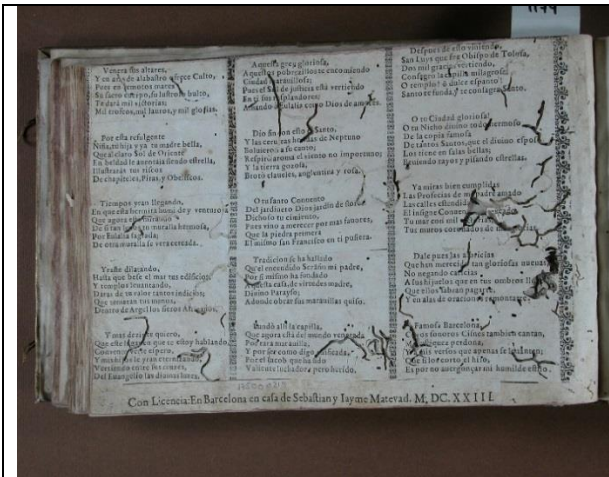 1174
Venera sus altares,
Y en ara de alabastro ofrece Culto,
Pues en remotos mares
Su sacro cuerpo, su lustroso bulto,
Te dará mil victorias;
Mil trofeos, mil lauros, y mil glorias.
Por esta refulgente
Niña, tu hija y ya tu madre bella,
Que al claro Sol de Oriente
En beldad le aventaja siendo estrella,
Ilustrarás tus riscos
De chapiteles, Piras, y Obeliscos.
Tiempos yran llegando,
En que esta hermita humilde y venturosa
Que agora
De si tan lexos tu muralla hermosa,
Por Eulalia sagrada;
De otra muralla se verá cercada.
Yraste dilatando,
Hasta que bese el mar tus edificios,
Y templos leuantando,
Darás de tu valor tantos indicios;
Que
Dentro de Argel sus fieros
Y mas dezirte quiero,
Que este
Conuento
Y
Vertiendo entre sus centros,
Del Euangelio las diuinas luzes.
Aquesta grey gloriosa,
Aquestos pobres te encomiendo
Ciudad marauillosa;
Pues el Sol de justicia está vertiendo
En ti sus resplandores;
Amando a Eulalia como Dios de amores.
Dio fin con esto el Santo,
Y las ceruleas hondas de Neptuno
Boluieron a su canto;
Respiró aroma el viento no importuno;
Y la tierra gozosa,
Brotó claueles, angelina y rosa.
O tu santo Conuento
Del jardinero Dios jardin de flores
Dichoso tu cimiento,
Pues vino a merecer por mas fauores,
Que la piedra primera
El mismo san Francisco en ti pusiera.
Tradicion se ha hallado
Que el encendido Serafin mi padre,
Por si mismo ha fundado
Aquesta casa, de virtudes madre,
Diuino Parayso;
Adonde obrar sus marauillas quiso.
Fundó alli la capilla,
Que agora está del mundo venerada
Por rara marauilla,
Y por ser como digo edificada,
Por el Iacob que ha sido
Valiente luchador, pero herido.
Despues de esto viniendo,
San Luys que fue Obispo de Tolosa,
Dos mil gracias vertiendo,
Consagró la capilla milagrosa;
O templo! ò dulce espanto!
Santo te funda, y te consagra Santo.
O tu Ciudad gloriosa!
O tu Nicho diuino todo hermoso
De la copia famosa
De tantos Santos, que el diuino esposo
Los tiene en salas bellas;
Luziendo rayos y pisando estrellas.
Ya miras bien cumplidas
Las Profecias de mi padre amado
Las calles estendidas
El insigne Conuento
Tu mar con mil
Tus muros coronados de
Dale pues las albricias
Que han merecido tan gloriosas nueuas
No negando caricias,
A sus hijuelos que en tus ombros lleuas
Que ellos sabran pagarte,
Y en alas de oracion remontarte.
Famosa Barcelona,
Otros sonoros Cisnes tambien cantan,
Mi flaqueza perdona,
Y a mis versos que apenas se leuantan;
Que buelo corto el hizo,
Es por no auergonçar mi humilde estilo.
Con Licencia: En Barcelona en casa de Sebastian y Iayme Matevad. M, DC. XXIII.